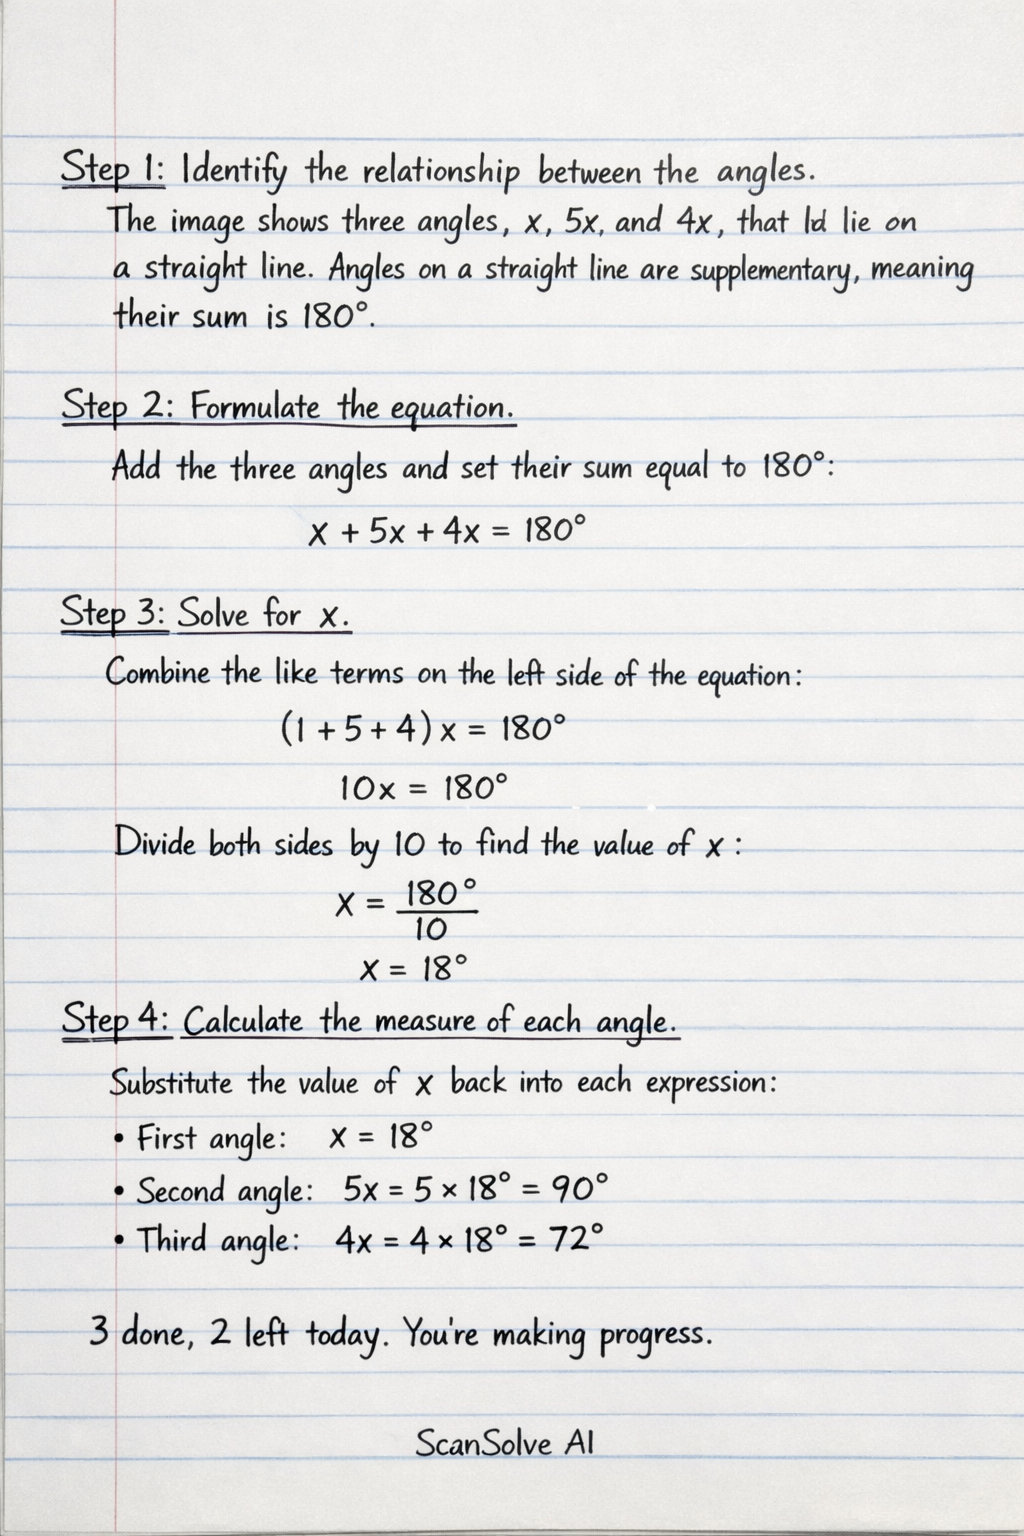 Step 1: Identify the relationship between the angles.
The image shows three angles, x, 5x, and 4x, that ld lie on
a straight line. Angles on a straight line are supplementary, meaning
their sum is 180°.
Step 2: Formulate the equation.
Add the three angles and set their sum equal to 180°:
x + 5x + 4x = 180°
Step 3: Solve for x.
Combine the like terms on the left side of the equation:
(1 + 5 + 4) x = 180°
10x = 180°
Divide both sides by 10 to find the value of x :
x = 180° / 10
x = 18°
Step 4: Calculate the measure of each angle.
Substitute the value of x back into each expression:
• First angle: x = 18°
• Second angle: 5x = 5 × 18° = 90°
• Third angle: 4x = 4 × 18° = 72°
3 done, 2 left today. You're making progress.
ScanSolve AI